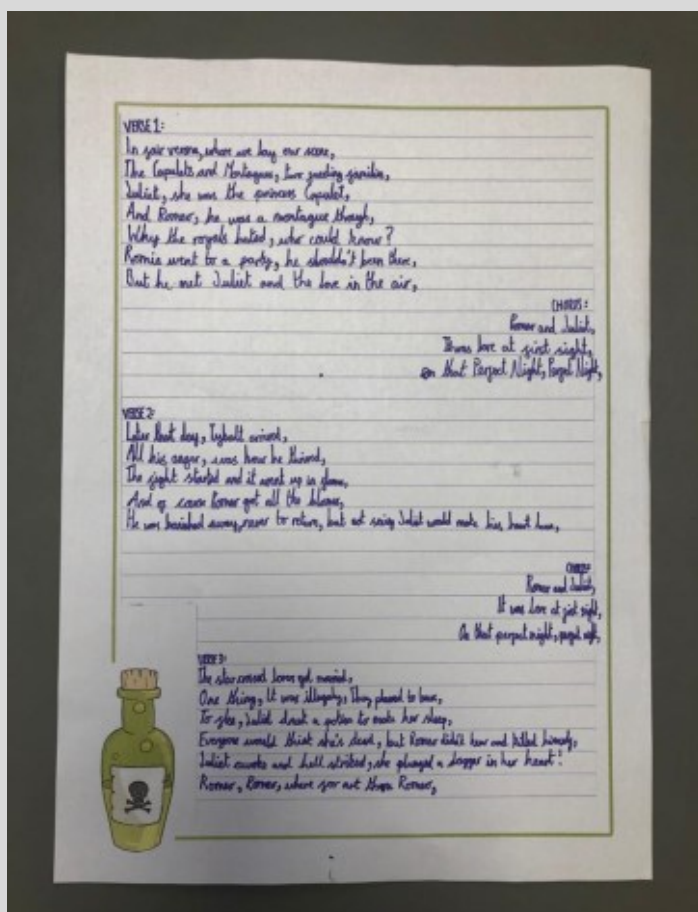 VERSE 1:
In fair verona, where we lay our scene,
The Capulets and Montagues, two feuding families,
Juliet, she was the princess Capulet,
And Romeo, he was a montague though,
Why the royals hated, who could know?
Romeo went to a party, he shouldn't been there,
But he met Juliet and the love in the air,
CHORUS:
Romeo and Juliet,
It was love at first sight,
on that Perfect Night, Perfect Night,
VERSE 2:
Later that day, Tybalt arrived,
All his anger, was how he thrived,
The fight started and it went up in flame,
And of course Romeo got all the blame,
He was banished away, never to return, but not seeing Juliet would make his heart burn,
CHORUS:
Romeo and Juliet,
It was love at first sight,
On that perfect night, perfect night,
VERSE 3:
The star crossed lovers got married,
One thing, It was illegally, They planned to leave,
To flee, Juliet drank a potion to make her sleep,
Everyone would think she's dead, but Romeo didn't hear and killed himself,
Juliet awoke and hell striked, she plunged a dagger in her heart!
Romeo, Romeo, where for art thou Romeo,